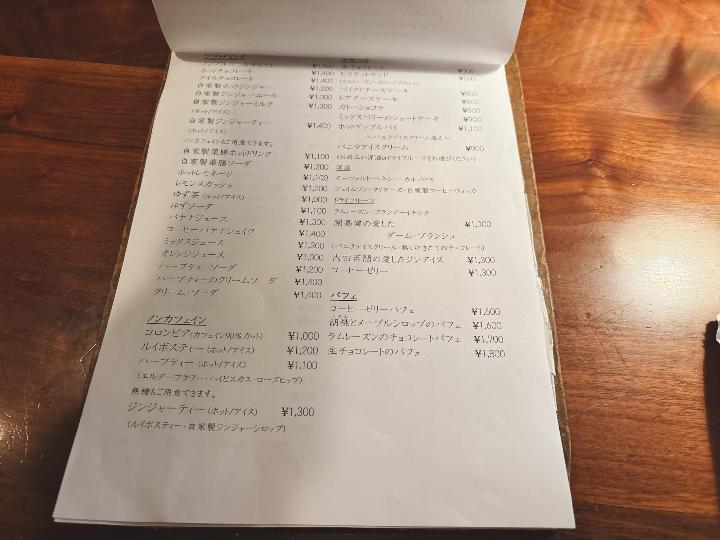 ソフトドリンク
ホットチョコレート ¥1,400
アイスチョコレート ¥1,400
自家製ホットジンジャー ¥1,200
自家製ジンジャーエール ¥1,300
自家製ジンジャーミルク ¥1,300
(ホット/アイス)
自家製ジンジャーティー ¥1,400
(ホット/アイス)
ノンカフェインもご用意できます。
自家製薬膳ホットドリンク ¥1,100
自家製薬膳ソーダ ¥1,200
ホットレモネード ¥1,100
レモンスカッシュ ¥1,200
ゆず茶 (ホット/アイス) ¥1,000
ゆずソーダ ¥1,100
バナナジュース ¥1,300
コーヒーバナナシェイク ¥1,400
ミックスジュース ¥1,300
オレンジジュース ¥1,000
ハーブティーソーダ ¥1,200
ハーブティーのクリームソーダ ¥1,400
クリームソーダ ¥1,400
ノンカフェイン
コロンビア(カフェイン90%カット) ¥1,000
ルイボスティー (ホット/アイス) ¥1,200
ハーブティー (ホット/アイス) ¥1,100
(エルダーフラワー・ハイビスカス・ローズヒップ)
無糖もご用意できます。
ジンジャーティー (ホット/アイス) ¥1,300
(ルイボスティー・自家製ジンジャーシロップ)
生チョコレート ¥500
ビスケットサンド ¥500
ベイクドチーズケーキ ¥800
レアチーズケーキ ¥800
ガトーショコラ ¥800
ミックスベリーのショートケーキ ¥900
ホットアップルパイ ¥1,100
〜バニラアイスクリーム添え〜
バニラアイスクリーム ¥900
(お好みの洋酒orドライフルーツをお選びください)
洋酒
ドライフルーツ
開高健の愛した ¥1,300
ダーム・ブランシュ
(バニラアイスクリーム・熱いできたてのチョコレート)
内田百閒の愛したジンアイス ¥1,300
コーヒーゼリー ¥1,300
パフェ
コーヒーゼリーパフェ ¥1,600
胡桃とメープルシロップのパフェ ¥1,600
ラムレーズンのチョコレートパフェ ¥1,700
生チョコレートのパフェ ¥1,800